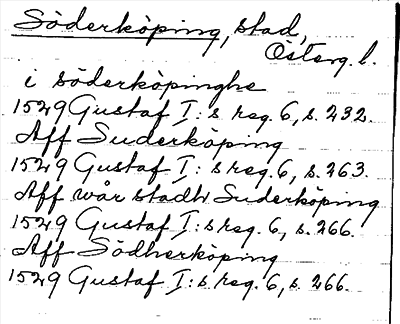 Söderköping, stad,
Österg. l.
i Söderköpinghe
1529 Gustaf I:s reg. 6, s. 232.
Aff Suderköping
1529 Gustaf I:s reg. 6, s. 263.
Aff wår stadh Suderköping
1529 Gustaf I:s reg. 6, s. 266.
Aff Södherköping
1529 Gustaf I:s reg. 6, s. 266.